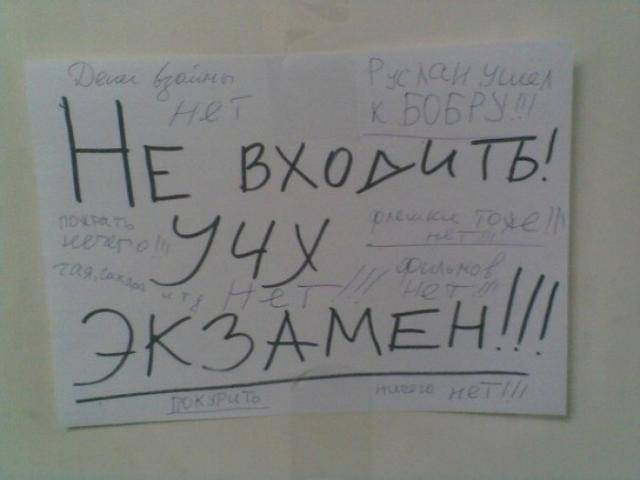 Денег взаймы
нет
Руслан ушёл
к БОБРУ!!!
НЕ ВХОДИТЬ!
пожрать
нечего!!!
УЧУ
флешки тоже!!!
нет!!!
чая, сахара
и тд
Нет!!!
фильмов
нет!!!
ЭКЗАМЕН!!!
ПОКУРИТЬ
ничего
нет!!!